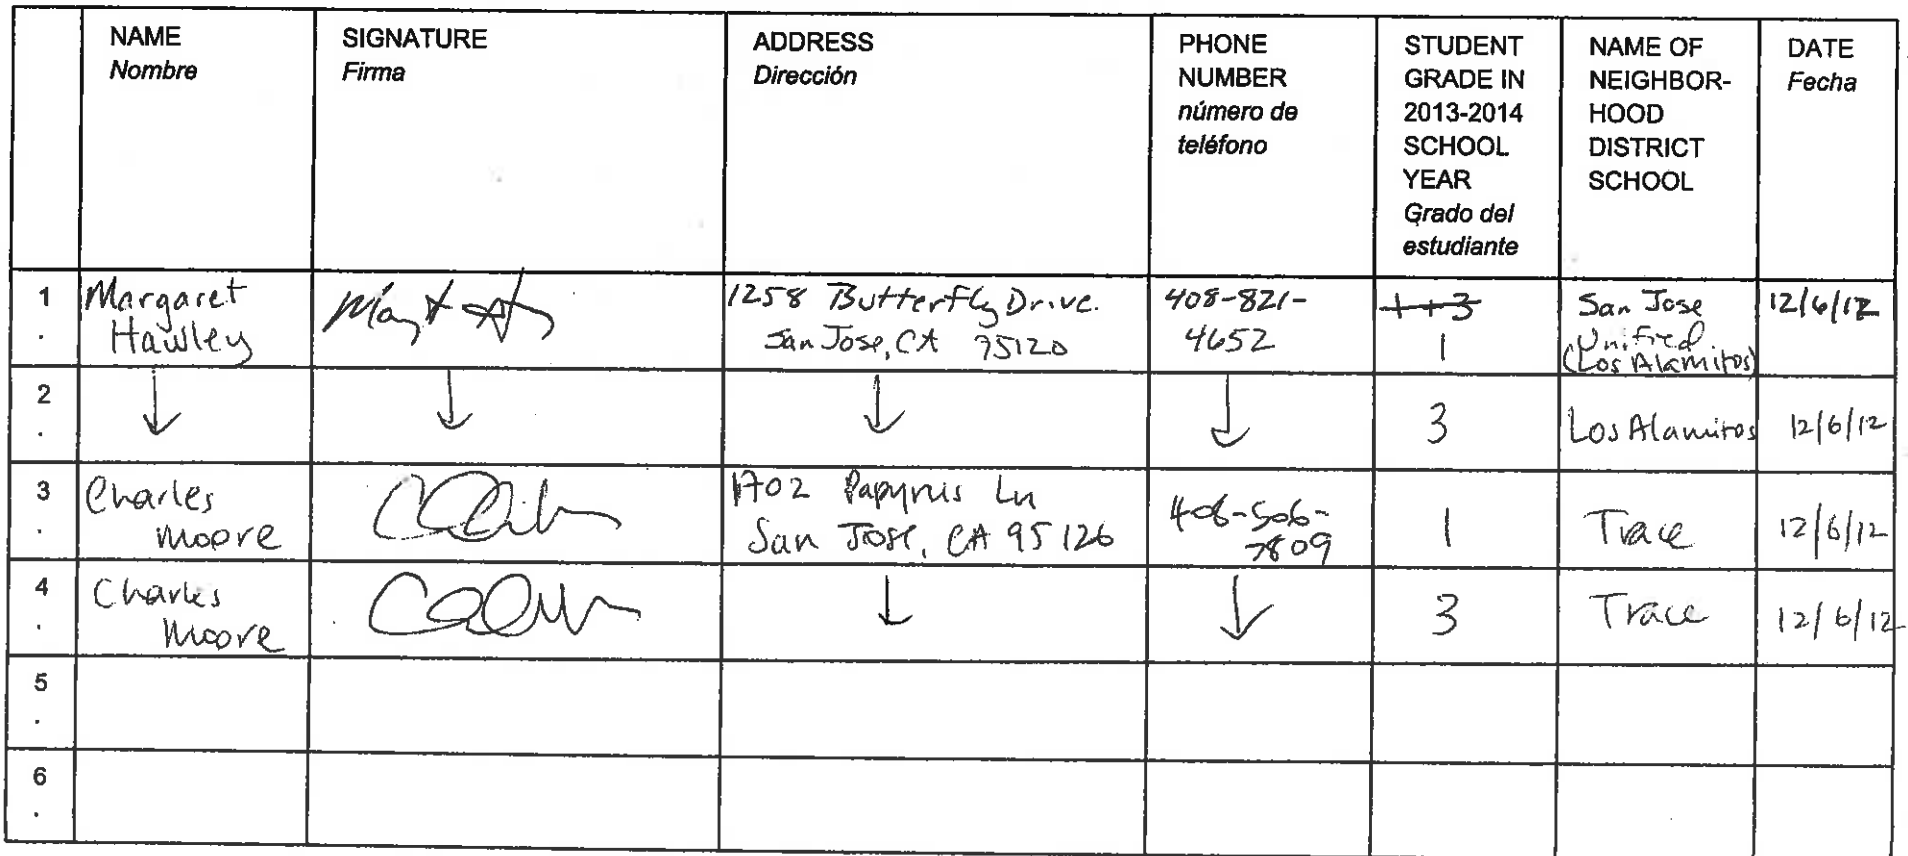 NAME
Nombre
SIGNATURE
Firma
ADDRESS
Dirección
PHONE
NUMBER
número de
teléfono
STUDENT
GRADE IN
2013-2014
SCHOOL
YEAR
Grado del
estudiante
NAME OF
NEIGHBOR-
HOOD
DISTRICT
SCHOOL
DATE
Fecha
1
.
Margaret
Hawley
1258 Butterfly Drive.
San Jose, CA 95120
408-821-
4652
1+3
1
San Jose
Unified
(Los Alamitos)
12/6/12
2
.
↓ ↓ ↓ ↓
3
Los Alamitos
12/6/12
3
.
Charles
Moore
1702 Papyrus Ln
San Jose, CA 95126
408-506-
7809
1
Trace
12/6/12
4
.
Charles
Moore
↓ ↓
3
Trace
12/6/12
5
.
6
.